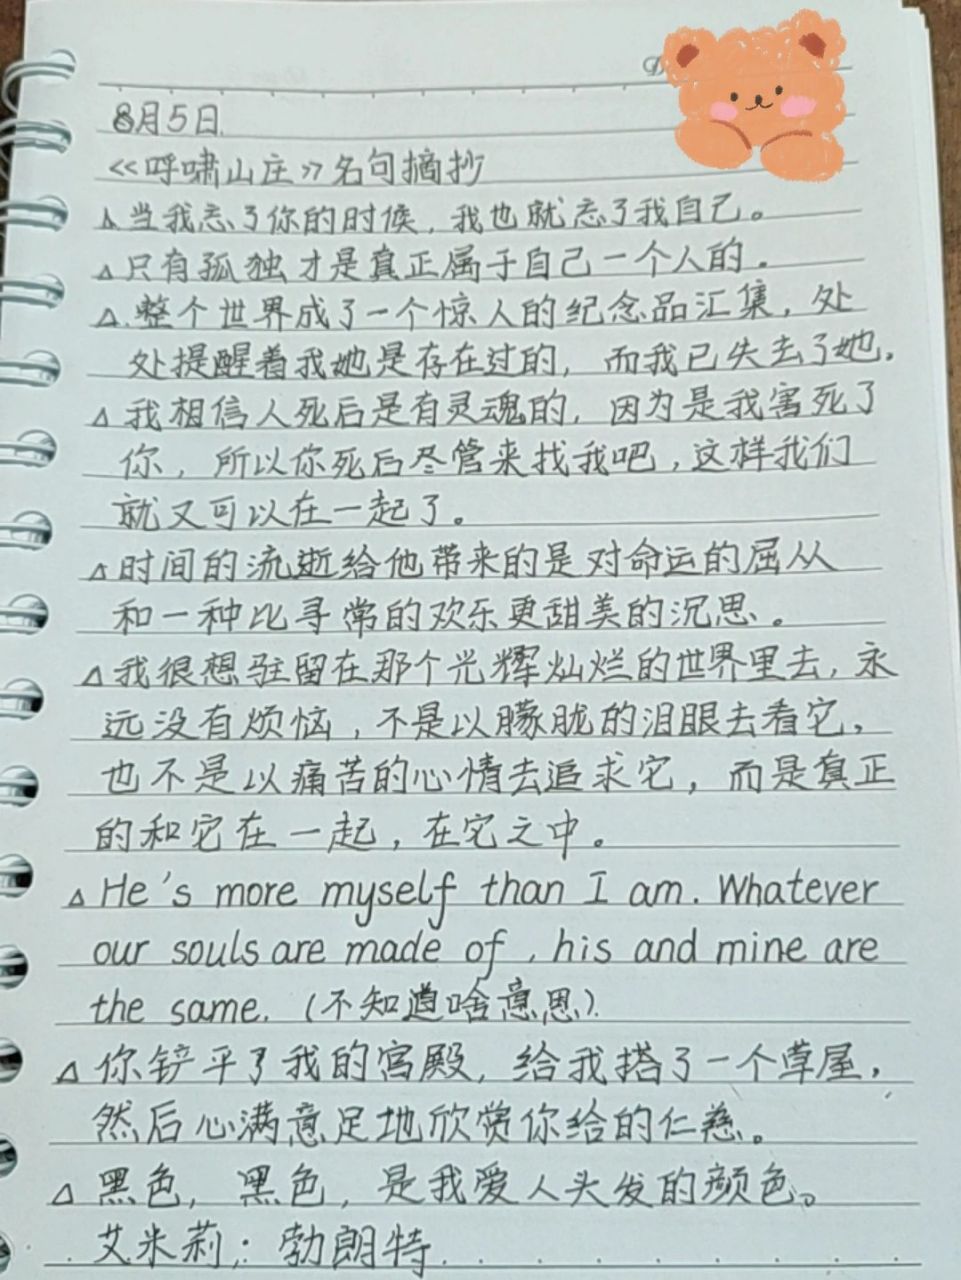 8月5日
《呼啸山庄》名句摘抄
△当我忘了你的时候，我也就忘了我自己。
△只有孤独才是真正属于自己一个人的。
△整个世界成了一个惊人的纪念品汇集，处
处提醒着我她是存在过的，而我已失去了她。
△我相信人死后是有灵魂的，因为是我害死了
你，所以你死后尽管来找我吧，这样我们
就又可以在一起了。
△时间的流逝给他带来的是对命运的屈从
和一种比寻常的欢乐更甜美的沉思。
△我很想驻留在那个光辉灿烂的世界里去，永
远没有烦恼，不是以朦胧的泪眼去看它，
也不是以痛苦的心情去追求它，而是真正
的和它在一起，在它之中。
△He's more myself than I am. Whatever
our souls are made of, his and mine are
the same.（不知道啥意思）
△你铲平了我的宫殿，给我搭了一个草屋，
然后心满意足地欣赏你给的仁慈。
△黑色，黑色，是我爱人头发的颜色。
艾米莉：勃朗特